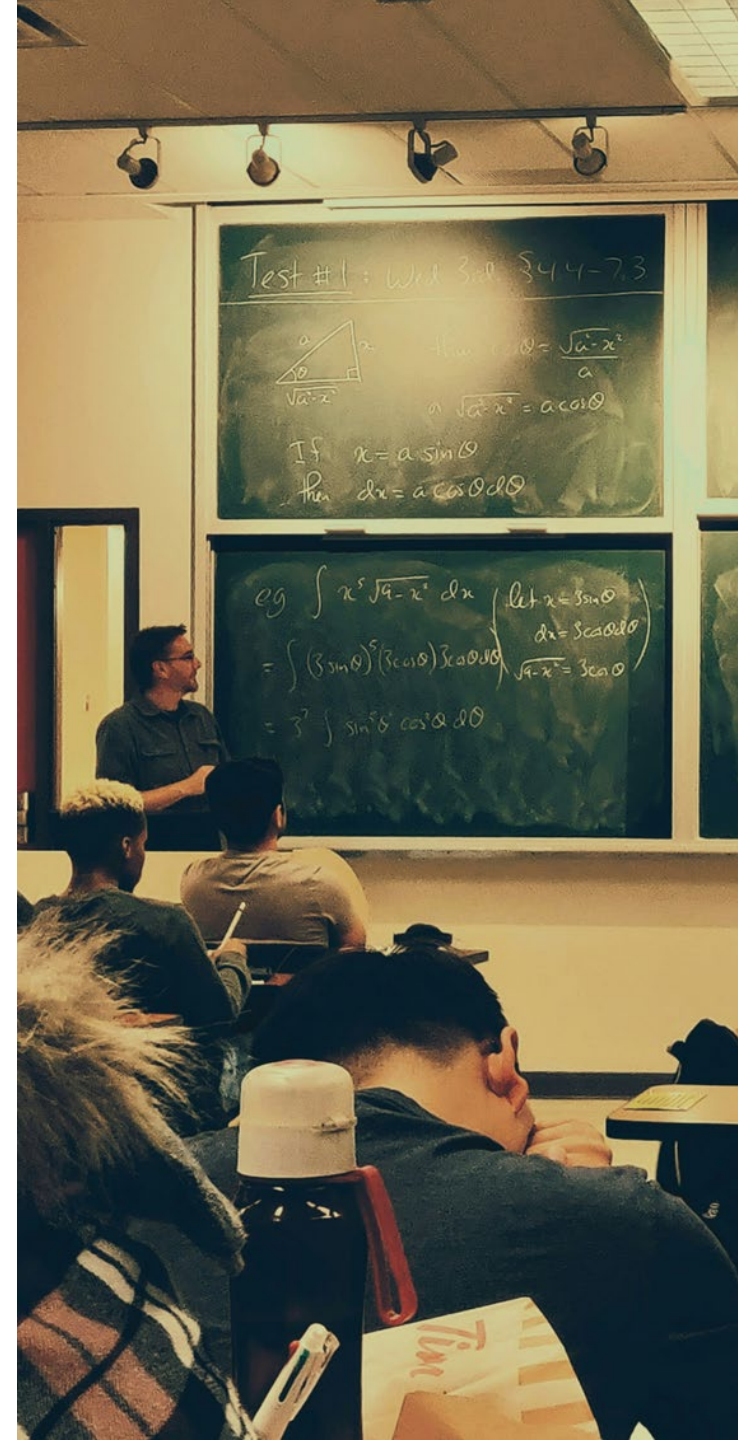 Test #1 : Wed §4.4-7.3
a
x
θ
√a²-x²
then cosθ = √a²-x² / a
or √a²-x² = a cosθ
If x = a sinθ
then dx = a cosθ dθ
eg ∫ x⁵ √9-x² dx
= ∫ (3 sinθ)⁵ (3cosθ) 3cosθ dθ
= 3⁷ ∫ sin⁵θ cos²θ dθ
( let x = 3 sinθ
dx = 3cosθ dθ
√9-x² = 3cosθ )
Tim